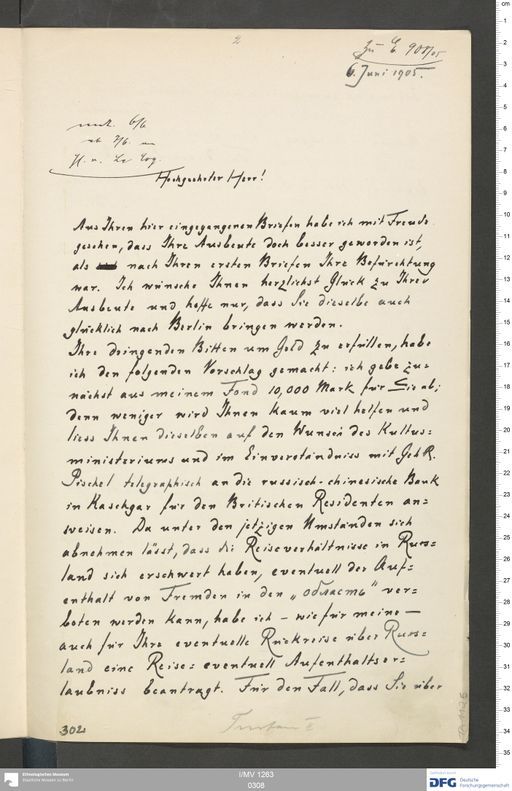 2
Zu E 901/05
6. Juni 1905.
Hochgeehrter Herr!
Aus Ihren hier eingegangenen Briefen habe ich mit Freude
gesehen, dass Ihre Ausbeute doch besser geworden ist,
als nach Ihren ersten Briefen Ihre Befürchtung
war. Ich wünsche Ihnen herzlichst Glück zu Ihrer
Ausbeute und hoffe nur, dass Sie dieselbe auch
glücklich nach Berlin bringen werden.
Ihre dringenden Bitten um Geld zu erfüllen, habe
ich den folgenden Vorschlag gemacht: ich gebe zu=
nächst aus meinem Fond 10,000 Mark für Sie ab;
denn weniger wird Ihnen kaum viel helfen und
liess Ihnen dieselben auf den Wunsch des Kultus=
ministeriums und im Einverständniss mit Geh R.
Pischel telegraphisch an die russisch-chinesische Bank
in Kaschgar für den Britischen Residenten an=
weisen. Da unter den jetzigen Umständen sich
abnehmen lässt, dass die Reiseverhältnisse in Russ=
land sich erschwert haben, eventuell der Auf=
enthalt von Fremden in den „область" ver=
boten werden kann, habe ich – wie für meine –
auch für Ihre eventuelle Rückreise über Russ=
land eine Reise= eventuell Aufenthaltser=
laubniss beantragt. Für den Fall, dass Sie über
302
Ethnologisches Museum
Staatliche Museen zu Berlin
I/MV 1263
0308
DFG
Deutsche
Forschungsgemeinschaft